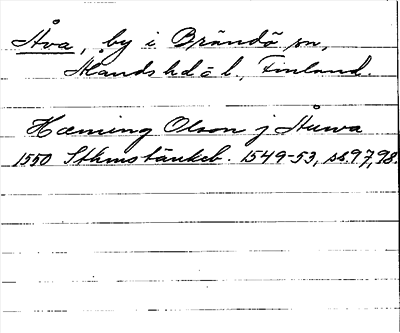 Åva, by i Brändö sn,
Ålands hd o l., Finland.
Hæming Olson j Åuwa
1550 Sthmstänkeb. 1549-53, ss. 97, 98.